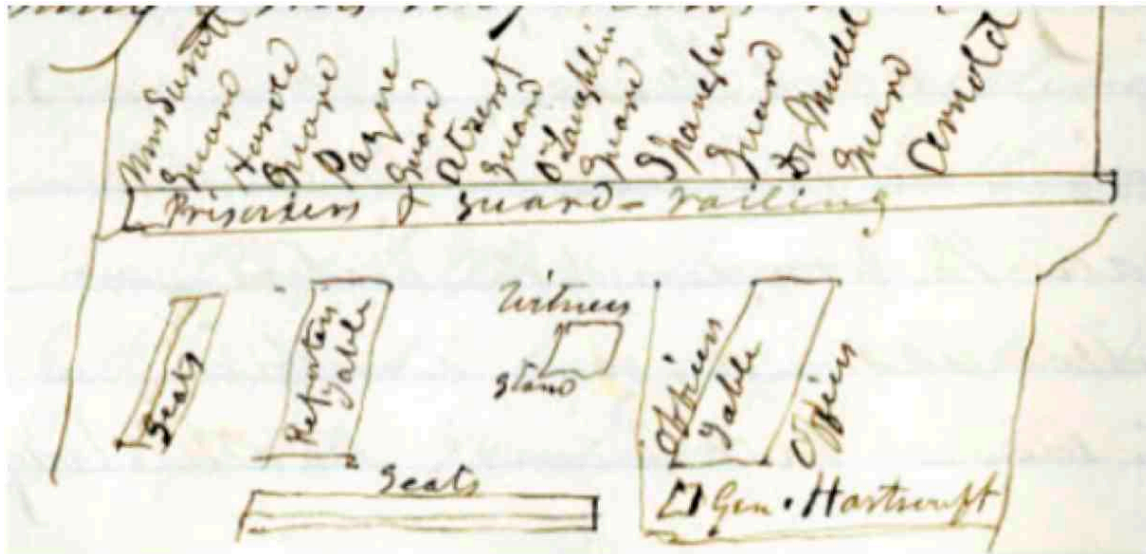 Mrs Suratt
Guard
Harold
Guard
Payne
Guard
Atzerot
Guard
O'Laughlin
Guard
Spangler
Guard
Dr Mudd
Guard
Arnold
Prisoners & Guard - railing
Witness
Stand
Seats
Reporters
Table
Officers
Table
Officers
Seats
Gen. Hartrunft